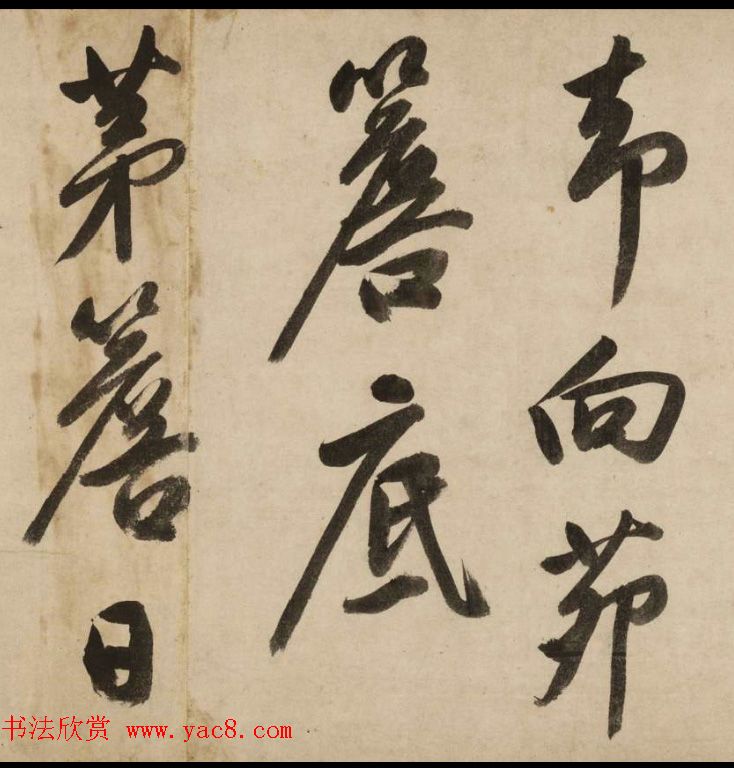 却向茆
簷底
茅簷日
书法欣赏 www.yac8.com